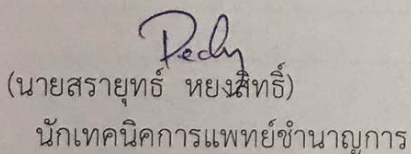 (นายสรายุทธ์ หยงสิทธิ์)
นักเทคนิคการแพทย์ชำนาญการ